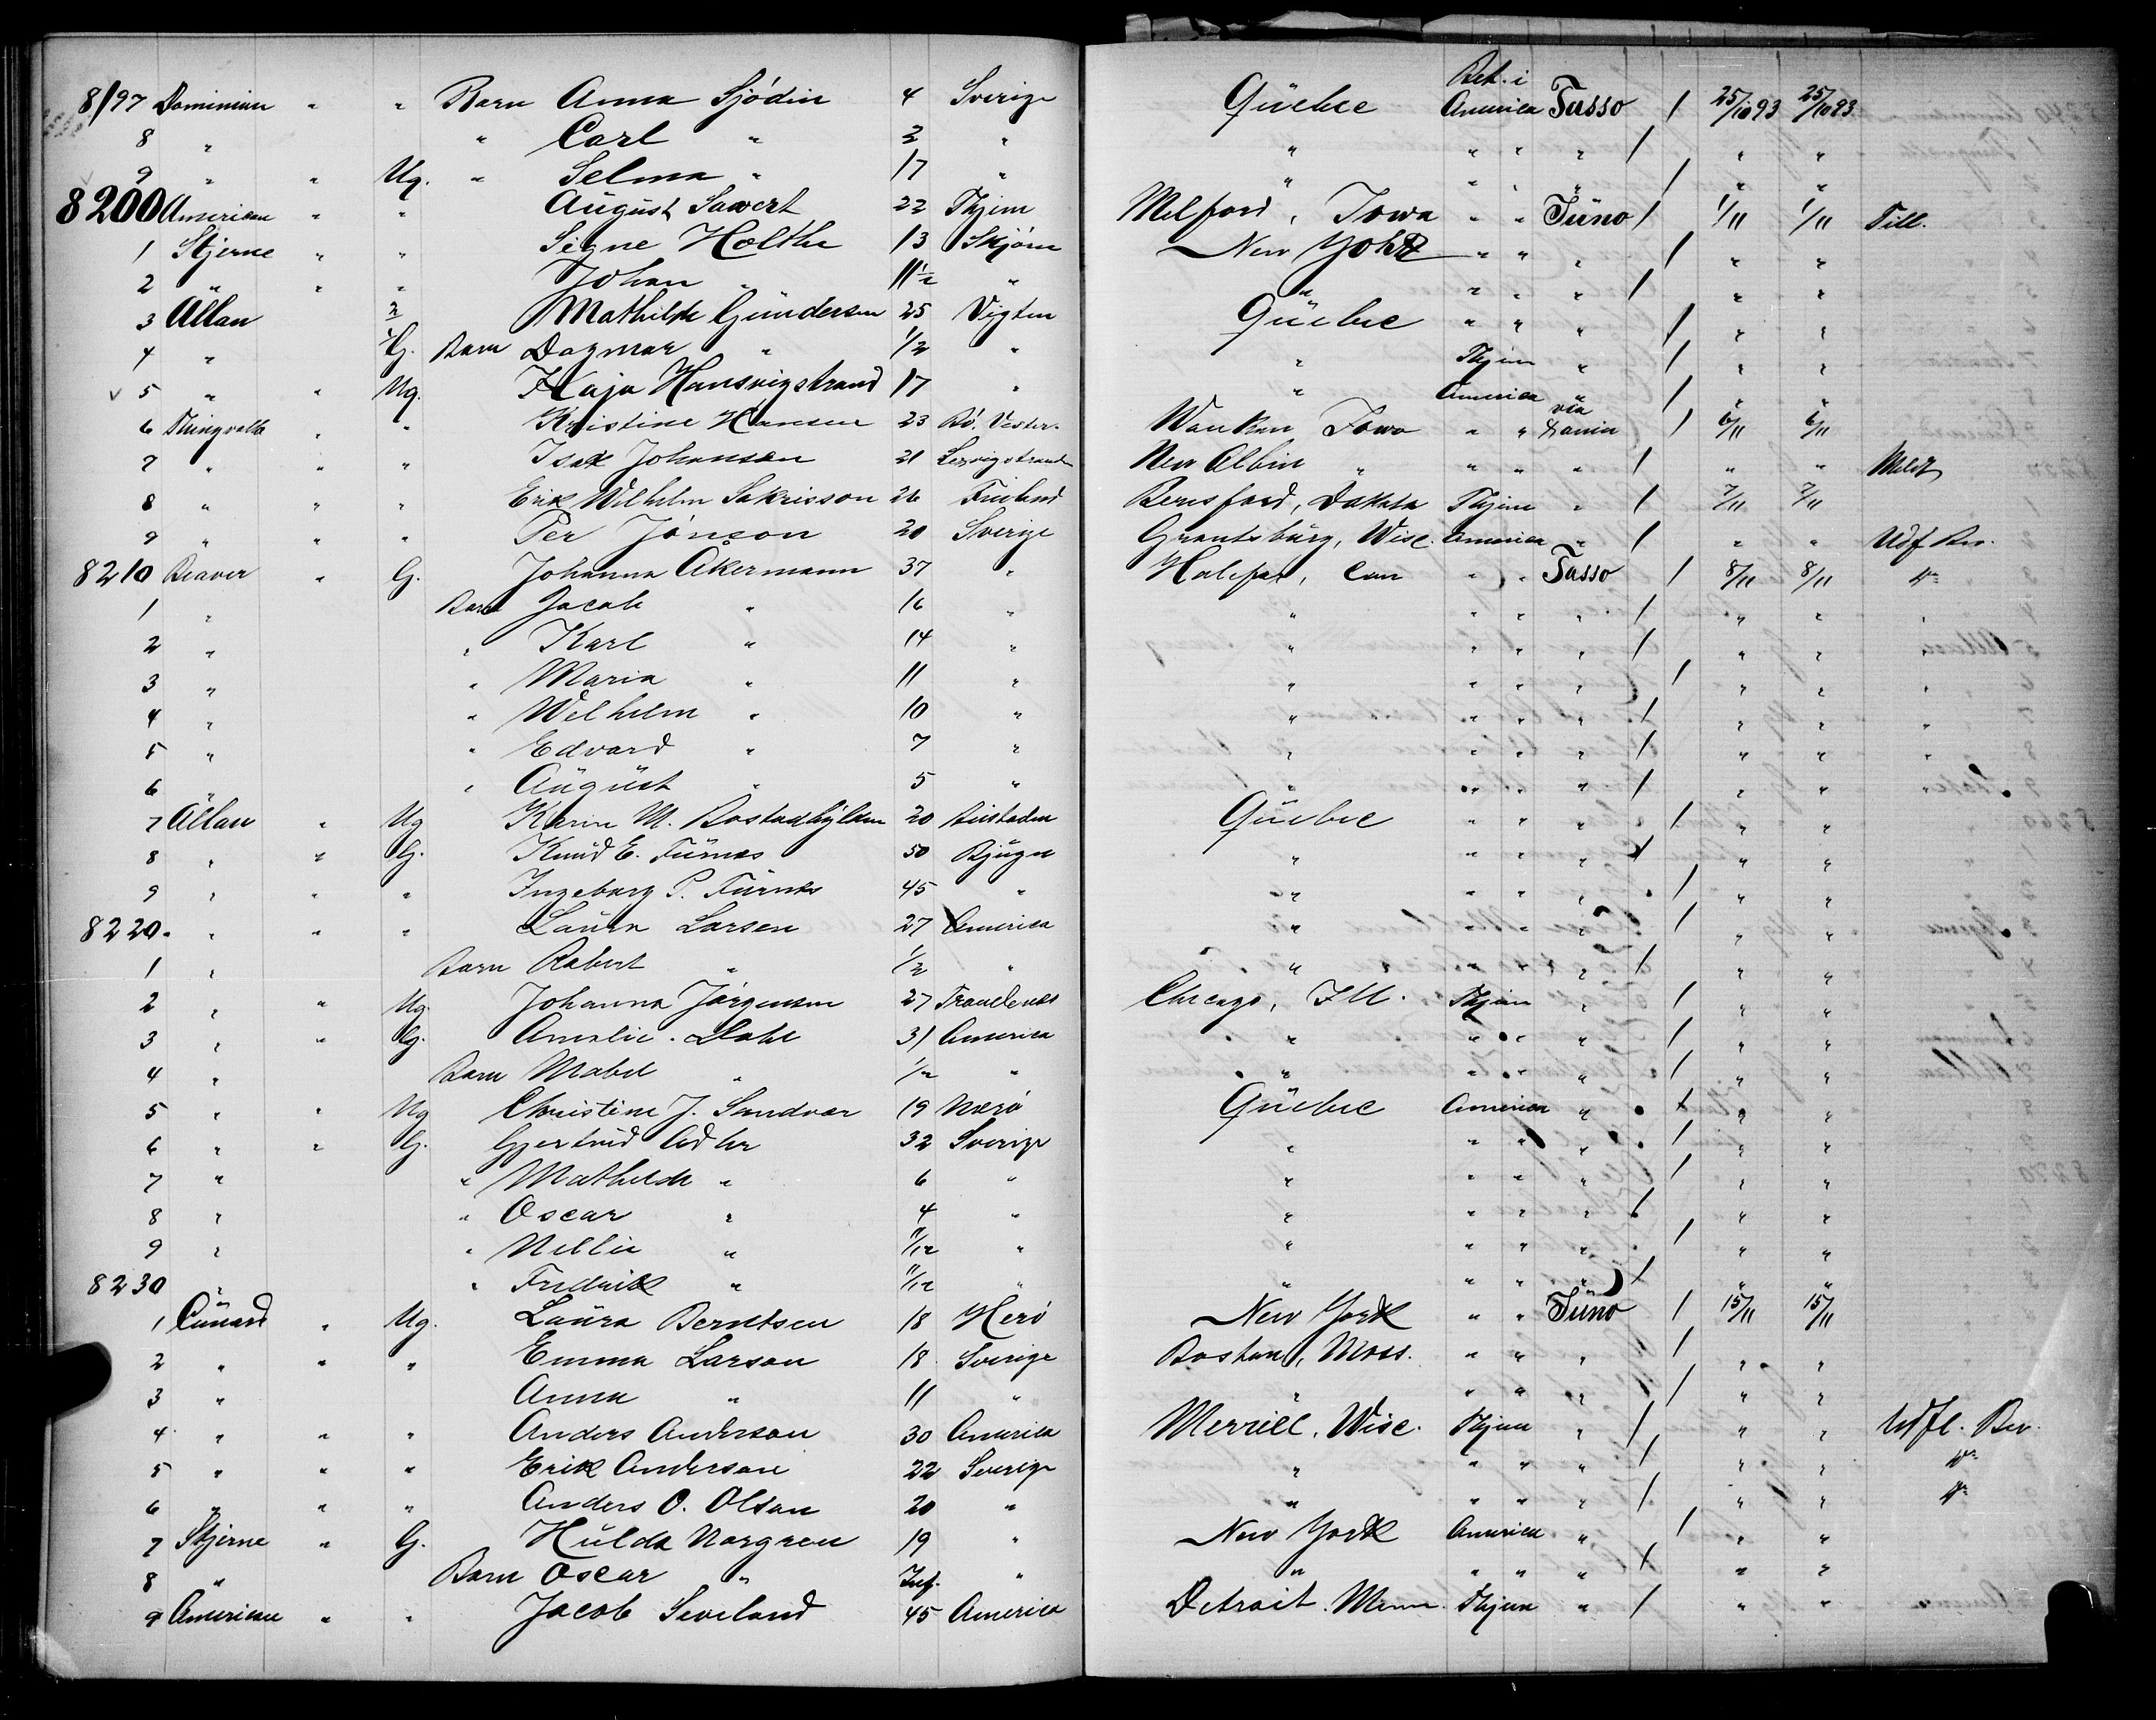 8197 Dominion " " Barn Anna Sjödin 4 Sverige Quebec Bet. i America Tasso / 25/10 93 25/10 93.
8 " " Carl " 2 " " " " " / " "
9 " " Ug. " Selma " 17 " " " " " / " "
8200 American " " August Sawert 22 Thjem Melford, Iowa " " Juno / 1/11 1/11 Till.
1 Stjerne " " Signe Holthe 13 Skjörn New York " " " / " "
2 " " " Johan " 11½ " " " " " / " "
3 Allan " Mathilde Gundersen 25 Vigten Quebec " " " / " "
4 " G. Barn Dagmar " 1/2 " " Thjem " / " "
5 " " Ug. Kaja Hansvigstrand 17 " " America " / " "
6 Thingvalla " " Kristine Hansen 23 Bö. Vester. Waukon Iowa " " via Dania / 6/11 6/11
7 " " " Isak Johansen 21 New Albin " " " " / " "
8 " " " Erik Wilhelm Sakrisson 26 Finland Beresford, Dakota Thjem " / 7/11 7/11
9 " " " Per Jönson 20 Sverige Grantsburg, Wisc. America " / " " Udf Bev.
8210 Beaver " G. Johanna Åkermann 37 " Halifax, Can " " Tasso / 8/11 8/11 do
1 " Barn Jacob " 16 " " " " " / " " "
2 " " Karl " 14 " " " " " / " " "
3 " " Maria " 11 " " " " " / " " "
4 " " Wilhelm " 10 " " " " " / " " "
5 " " Edvard " 7 " " " " " / " " "
6 " " August " 5 " " " " " / " " "
7 Allan " Ug Karin M. 20 Quebec " " " / " "
8 " " G. Knud E. Furnes 50 Bjugn " " " " / " "
9 " " " Ingeborg P. Furnes 45 " " " " " / " "
8220 " " " Laura Larsen 27 America " " " " / " "
1 " Barn Robert " 1/2 " " " " " / " "
2 " " Ug. Johanna Jörgensen 27 Trondenes Chicago, Ill. Thjem " / " "
3 " " G. Amalie Dahl 31 America " " " " / " "
4 " Barn Mabel " 1/2 " " " " " / " "
5 " " Ug Christine J. Sandvær 19 Nærö Quebec America " / " "
6 " " G. Gjertrud Adler 32 Sverige " " " " / " "
7 " " Mathilde " 6 " " " " " / " "
8 " " Oscar " 4 " " " " " / " "
9 " " Nellie " 11/12 " " " " " / " "
8230 " " Fredrik " 11/12 " " " " " / " "
1 Cunard " Ug. Laura Berntsen 18 Herö New York " " Juno / 15/11 15/11
2 " " " Emma Larson 18 Sverige Boston, Mass. " " " / " "
3 " Anna " 11 " " " " " / " "
4 " " " Anders Anderson 30 America Merrill, Wisc. Thjem " / " " Udfl. Bev.
5 " " " Erik Anderson 22 Sverige " " " " / " " do
6 " " " Anders O. Olson 20 " " " " " / " " do
7 Stjerne " G. Hulda Norgren 19 " New York America " / " "
8 " Barn Oscar " Inf. " " " " " / " "
9 American " " Jacob Seveland 45 America Detroit, Minn. Thjem " / " "